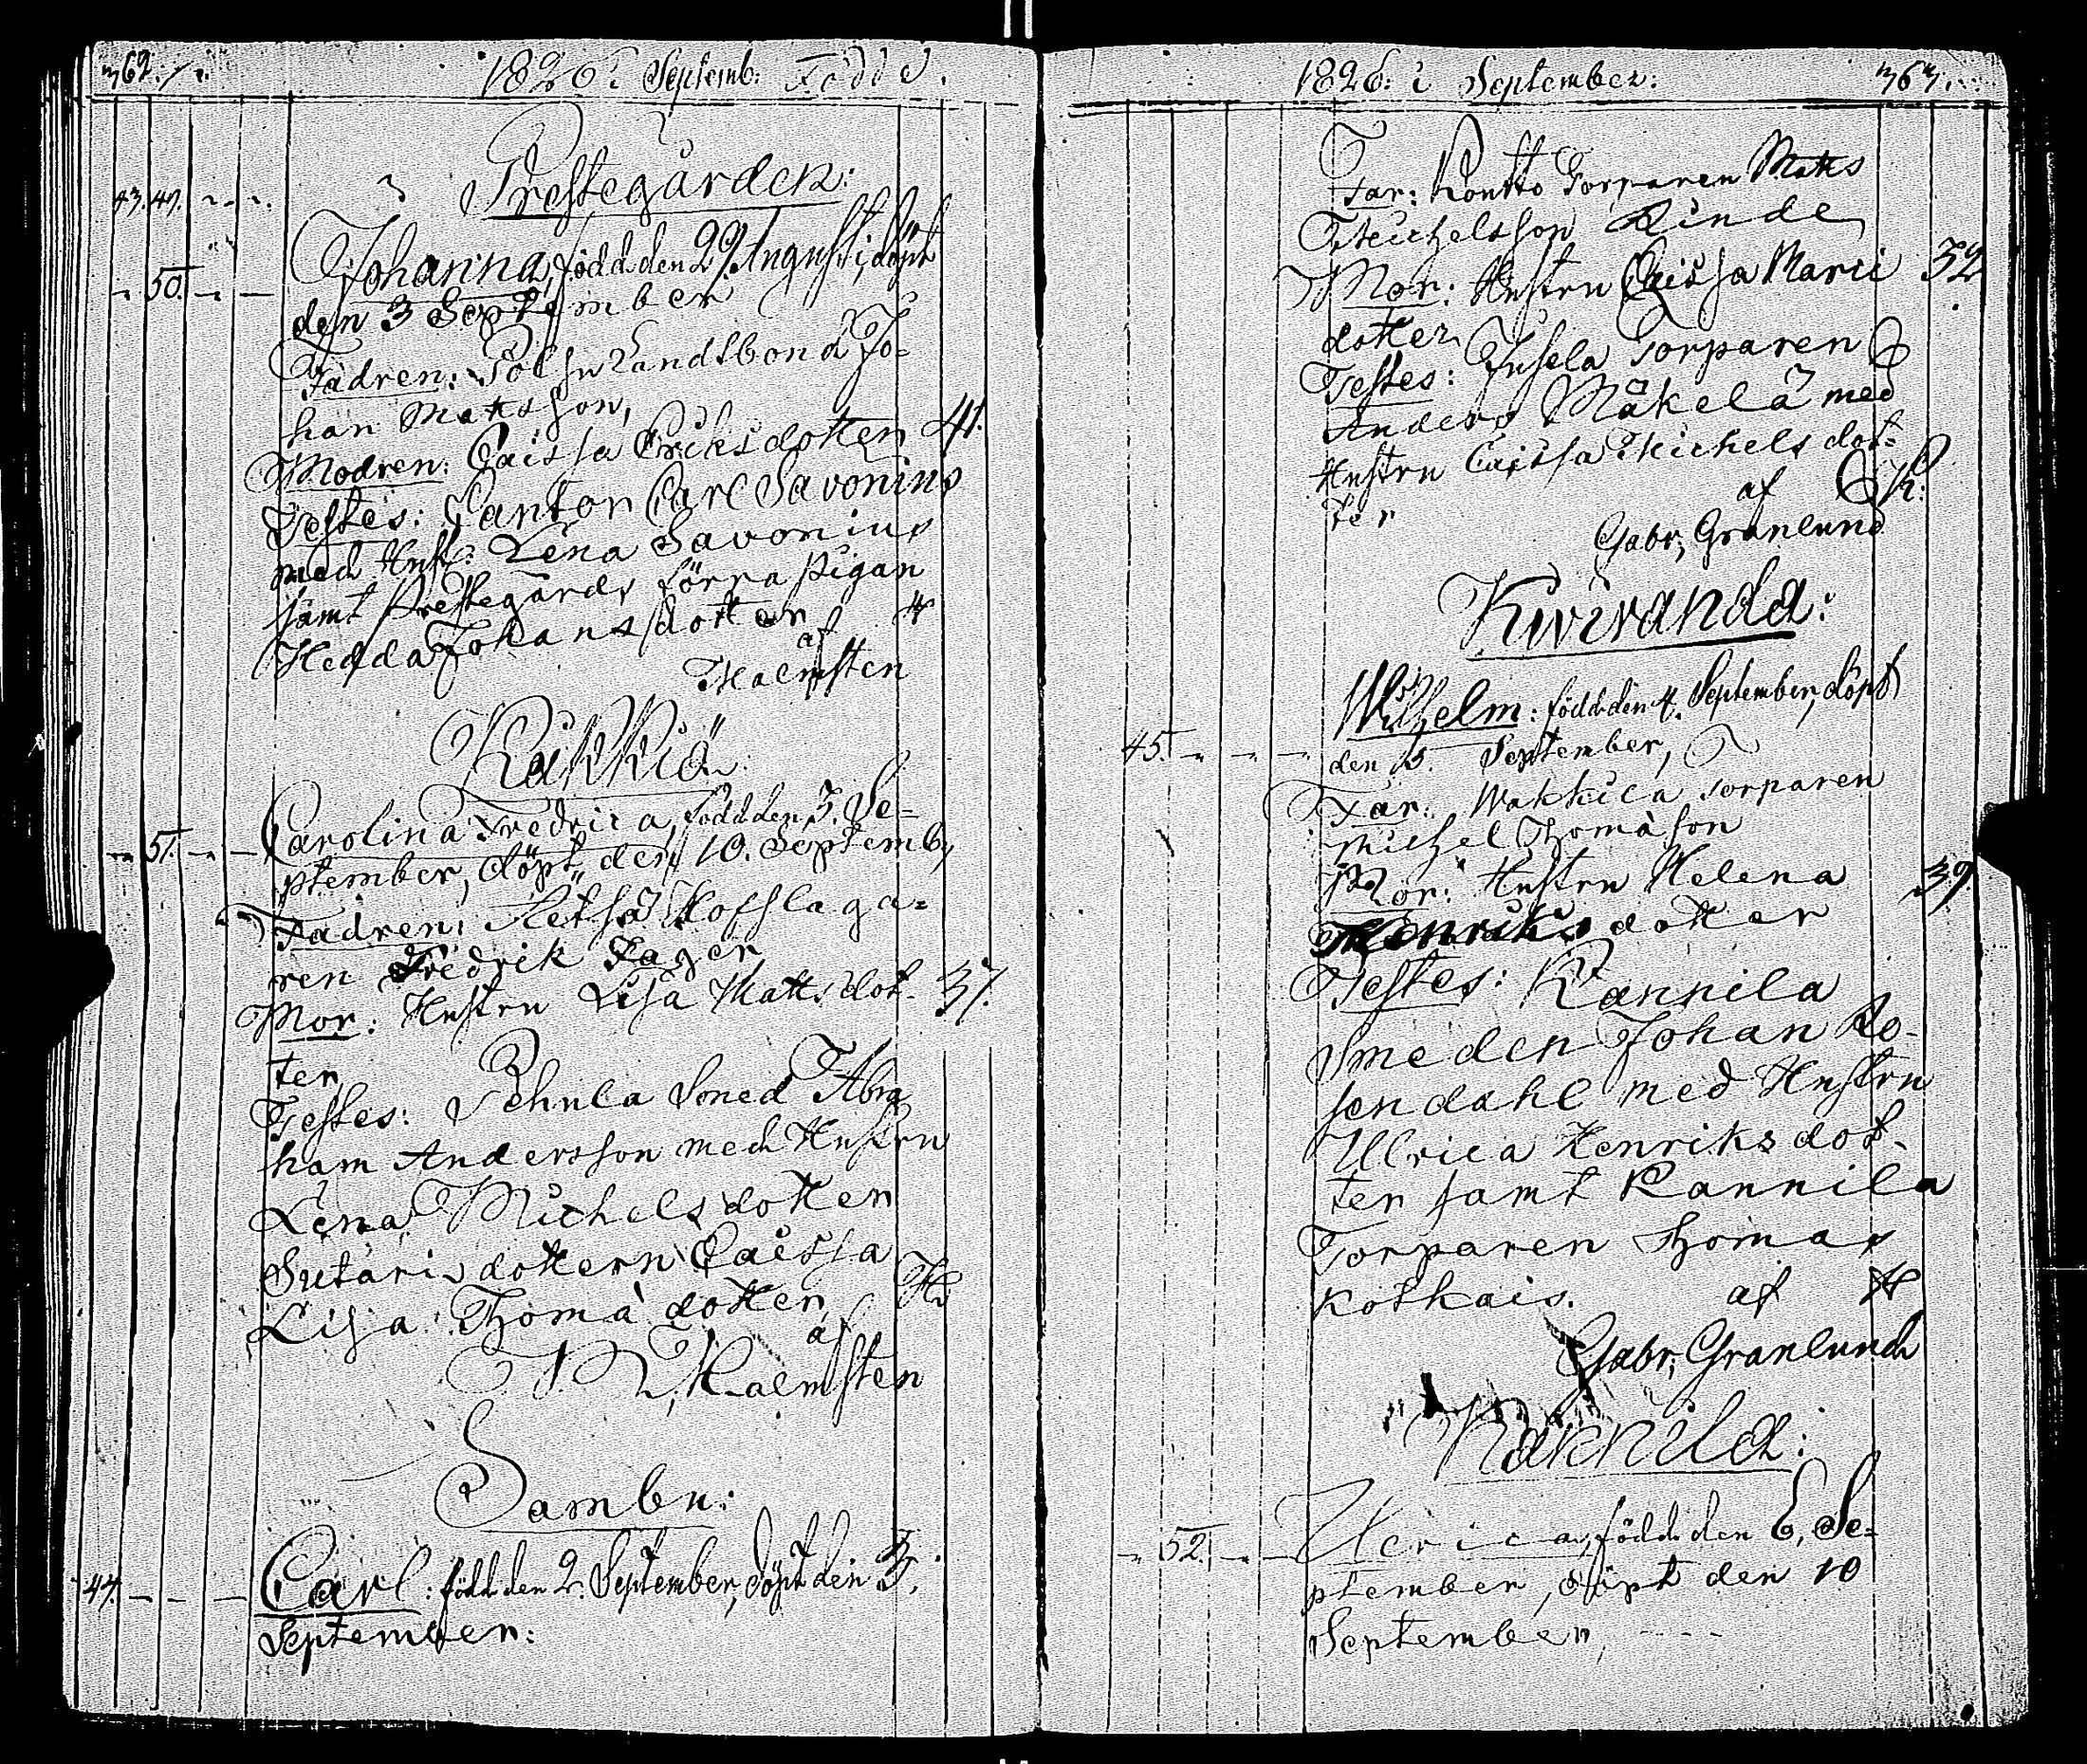 362.
1826 i Septemb: Födde.
Prestegården:
43. 47.
Johanna, född den 29 Augusti, döpt
50.
den 3 September
Fadren: Landsbond Jo=
han Matsson,
Modren: Caissa Ericsdotter 41.
Testes: Cantor Carl Savonius
med Hust: Lena Savonius
samt Prestegårds förra Pigan
Hedda Johansdotter
af
Malmsten
Käkkiö
Carolina Fredrica, född den 3. Se=
51.
ptember, döpt den 10. Septemb,
Fadren: Hofslaga=
ren Fredrik Fager
Mor: Hustru Lisa Mattsdot- 37.
ter
Testes: Smed Abra
ham Andersson med Hustru
Lena Michelsdotter
Sutaris dottern Caissa
Lisa Thomä dotter
af
Malmsten
Sambu:
Carl: född den 2. September, döpt den 3.
44.
September:
1826: i September: 363.
Far: Kontto Torparen Mats
Michelsson Rinde
Mor: Hustru Caissa Marii 32
dotter
Testes: Torparen
Anders Mäkelä med
Hustru Caissa Michels dot-
ter af
Gabr; Granlund
Kivivanda:
Wilhelm: född den 4. September, döpt
45.
den 5. September,
Far: Wakkila torparen
Michel Thomä son
Mor: Hustru Helena 39.
Henriks dotter
Testes: Kannila
Smeden Johan Ro-
sendahl med Hustru
Ulrica Henriks dot-
ter samt Kannila
Torparen Thomas
Kotkais. af
Gabr; Granlund
Kakkila:
Ulrica, född den 6, Se=
52.
ptember, döpt den 10
September,